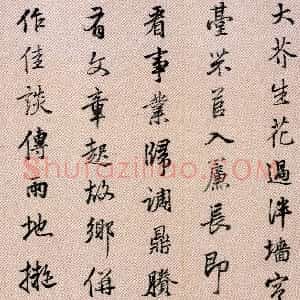 大芥生花過泮墻宫
臺采芭入簾長即
看事業歸調鼎賸
有文章起故鄉併
作佳談傳两地擬
Shufaziliao.COM